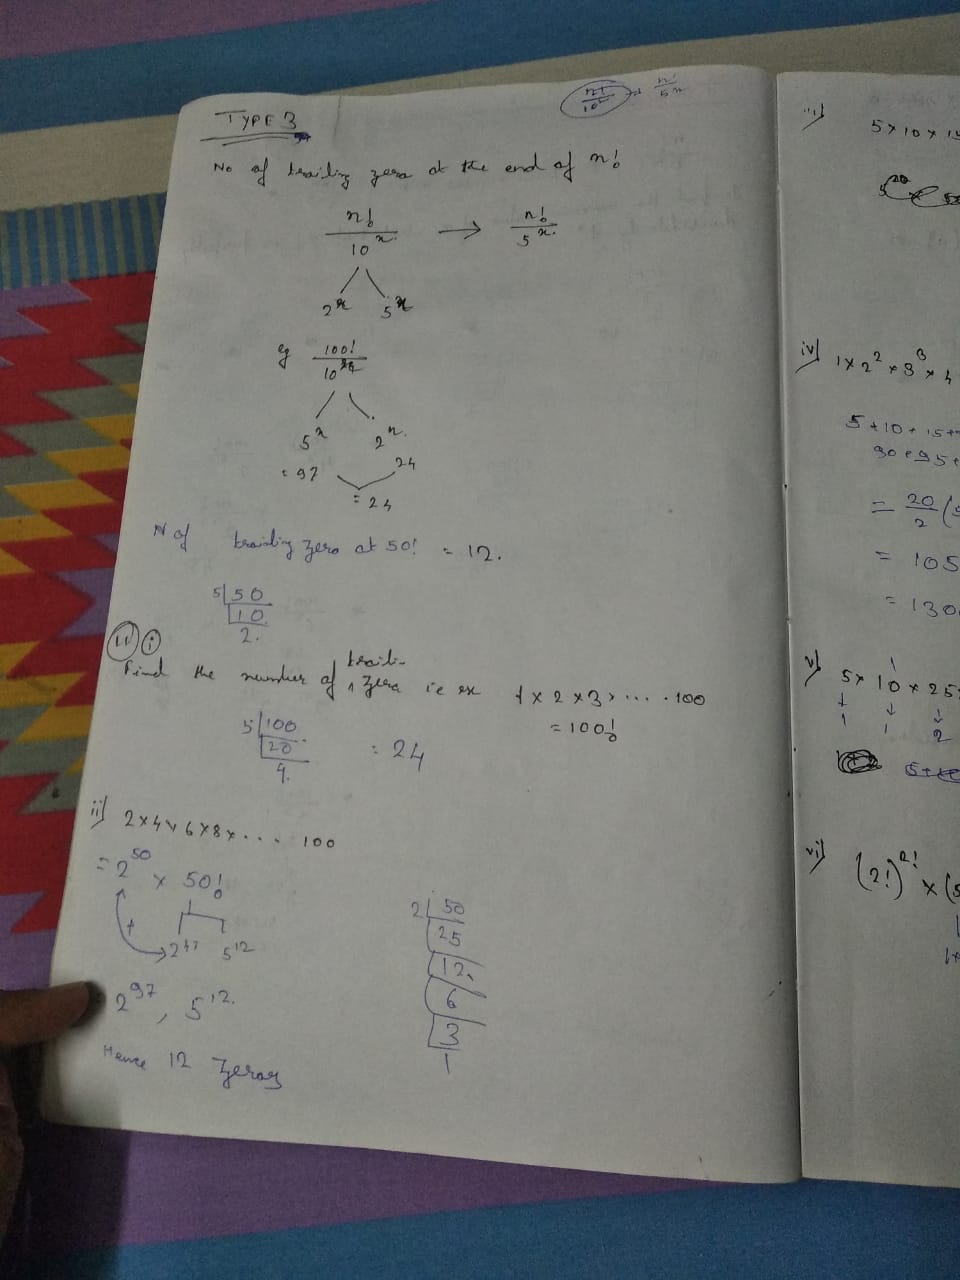 TYPE 3
n!/10^x → n!/5^x
No of trailing zero at the end of n!
n!/10^x → n!/5^x
2^x 5^x
eg 100!/10^x
5^x 2^x
= 97 24
= 24
N of trailing zero at 50! = 12.
5 | 50
10
2.
11 i
Find the number of traili- zero ie ex 1 x 2 x 3 x .... 100
= 100!
5 | 100
20
4.
= 24
ii) 2 x 4 x 6 x 8 x .... 100
= 2^50 x 50!
+
2^47 5^12
2^97 , 5^12.
Hence 12 Zeros
2 | 50
25
12.
6
3
1
5 x 10 x 15
iv) 1 x 2^2 x 3^3 x 4
5 + 10 + 15 +
90 + 95 +
= 20/2 (5
= 105
= 130
v) 5 x 10 x 25
1 1 2
vi) (2!)^2! x (